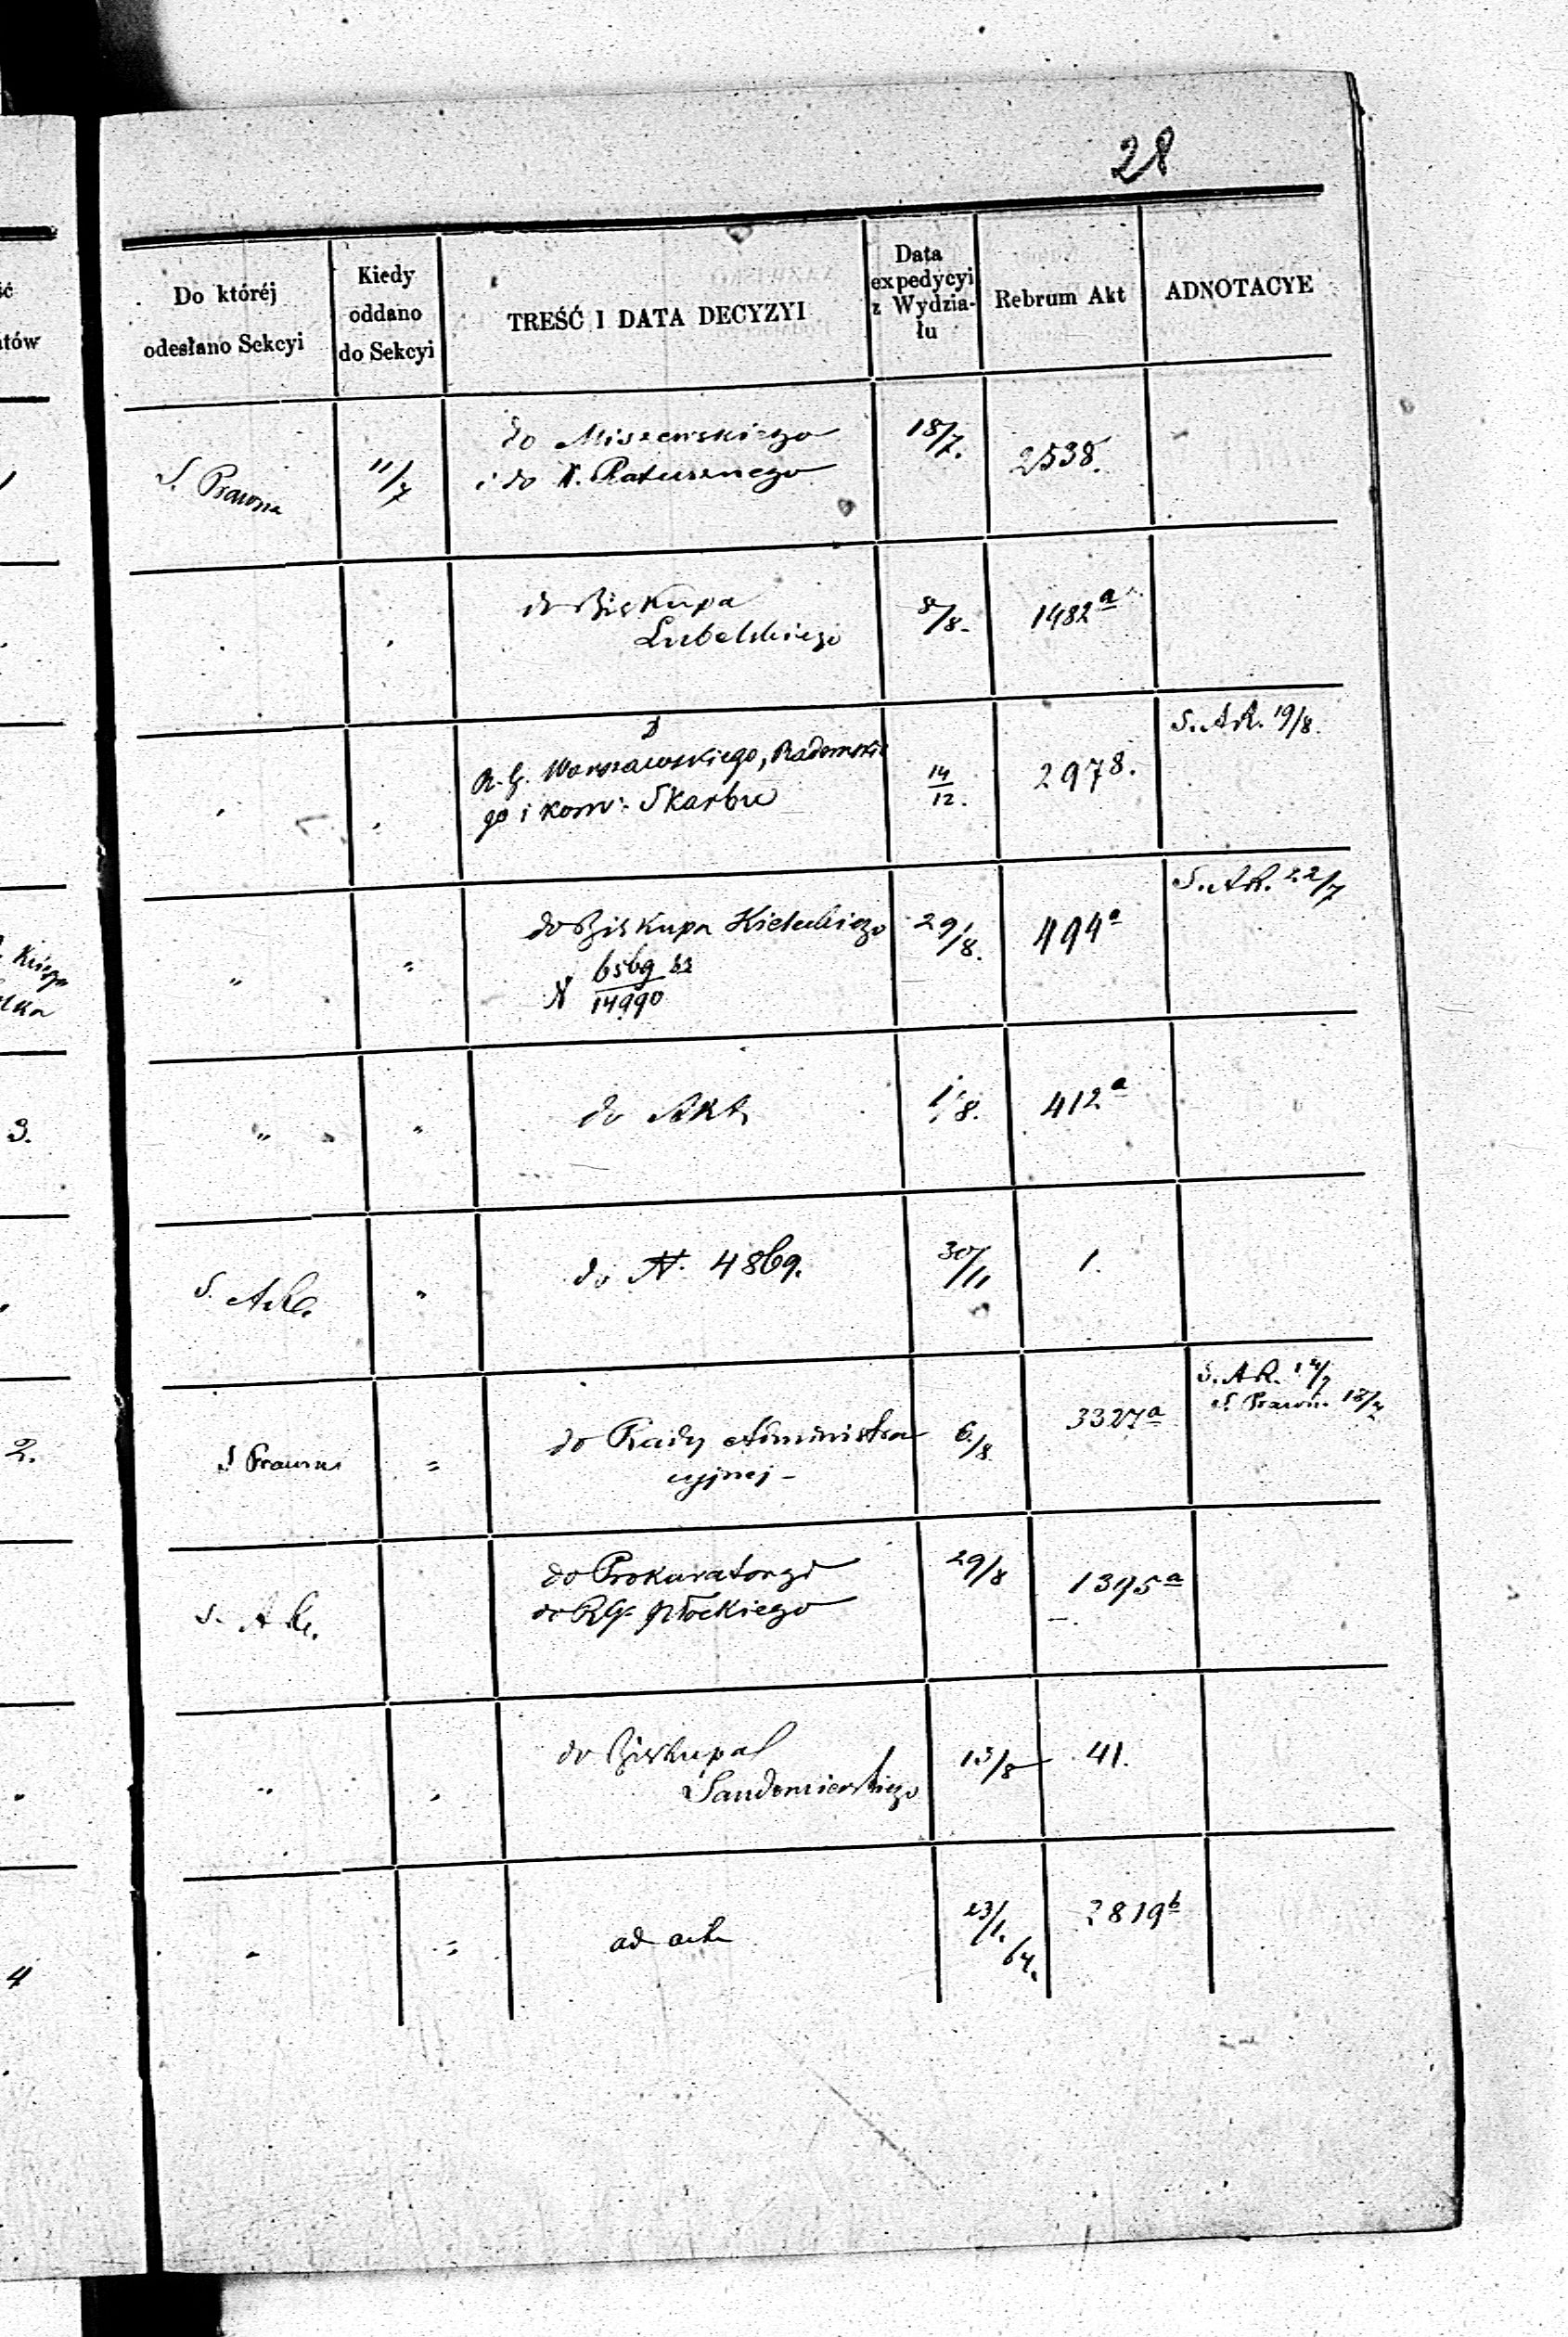 28
Do któréj odesłano Sekcyi | Kiedy oddano do Sekcyi | TREŚĆ I DATA DECYZYI | Data expedycyi z Wydziału | Rebrum Akt | ADNOTACYE
S. Prawna | 11/7 | do Miszewskiego | 18/7. | 2538.
i do N. Ratusznego
do Biskupa | 8/8. | 1482 a
Lubelskiego
D
R. G. Warszawskiego, Radomskie | 14/12. | 2978. | S. AR. 19/8.
go i Kom: Skarbu
" | " | do Biskupa Kieleckiego | 29/8. | 494 a | S. AR. 22/7
N 6569 /14990
" | " | do Akt | 1/8. | 412 a
S. AR. | " | do N. 4869. | 30/11 | 1.
S Prawna | " | do Rady Administra | 6/8 | 3327 a | S. AR. 14/7
cyjnej - | S. Prawn. 18/7
S. AR. | do Prokuratoryi | 29/8 | 1395 a
do RG Płockiego
" | " | do Biskupa | 13/8 | 41.
Sandomierskiego
" | " | ad acta | 23/1. 64. | 2819 b
ść
ntów
3.
2.
4